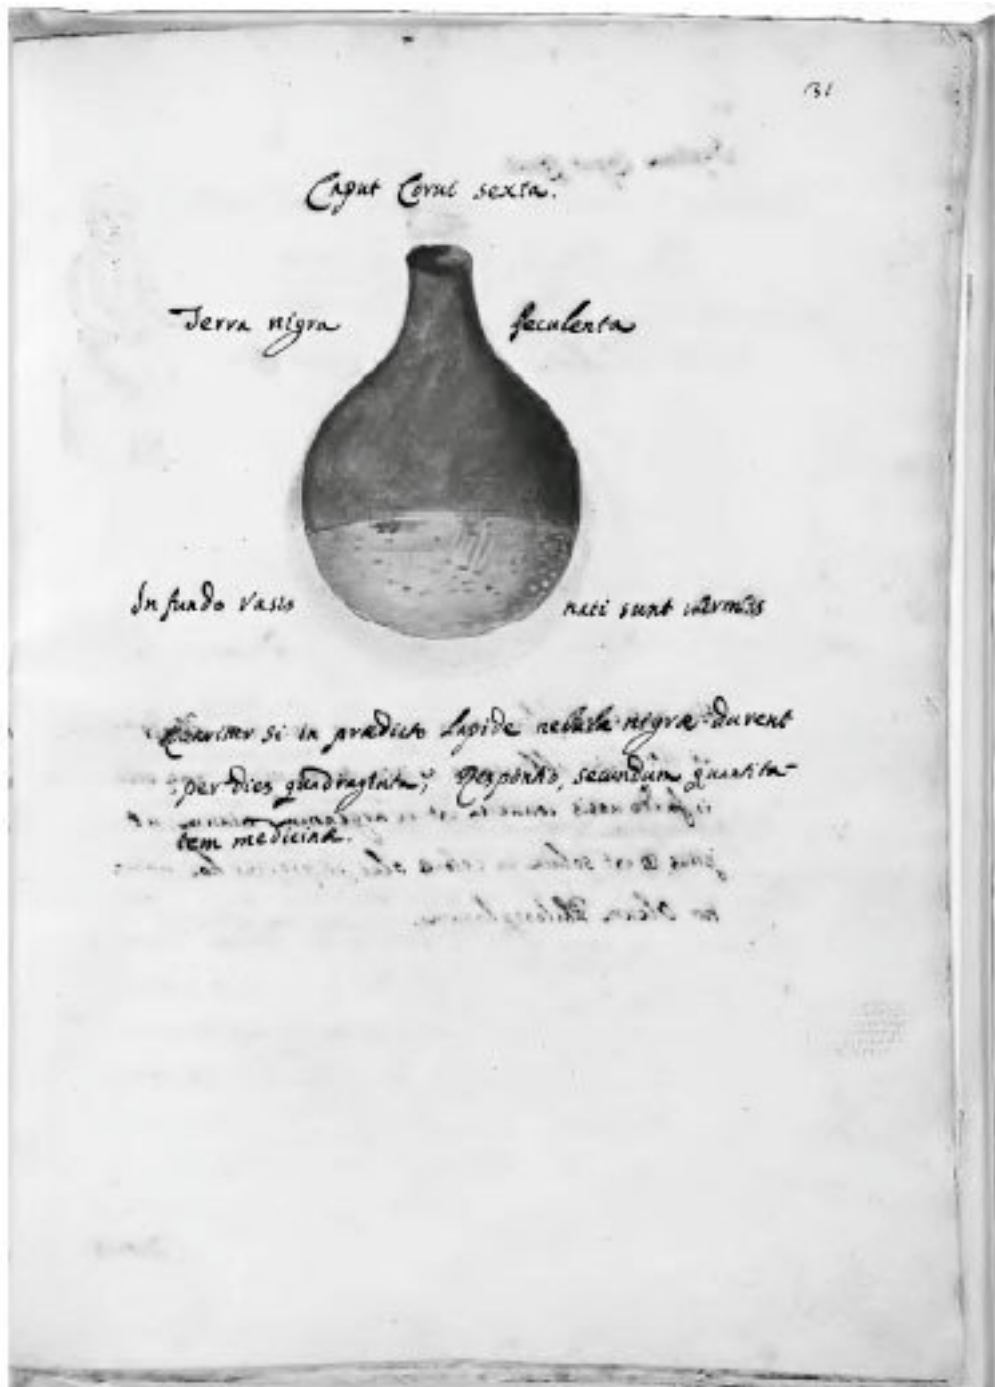 31
Caput Corui sexta.
Terra nigra feculenta
In fundo vasis nati sunt vermes
si in prædicto lapide nebulæ nigræ durent
per dies quadraginta; Respontio, secundum quantita-
tem medicinæ.